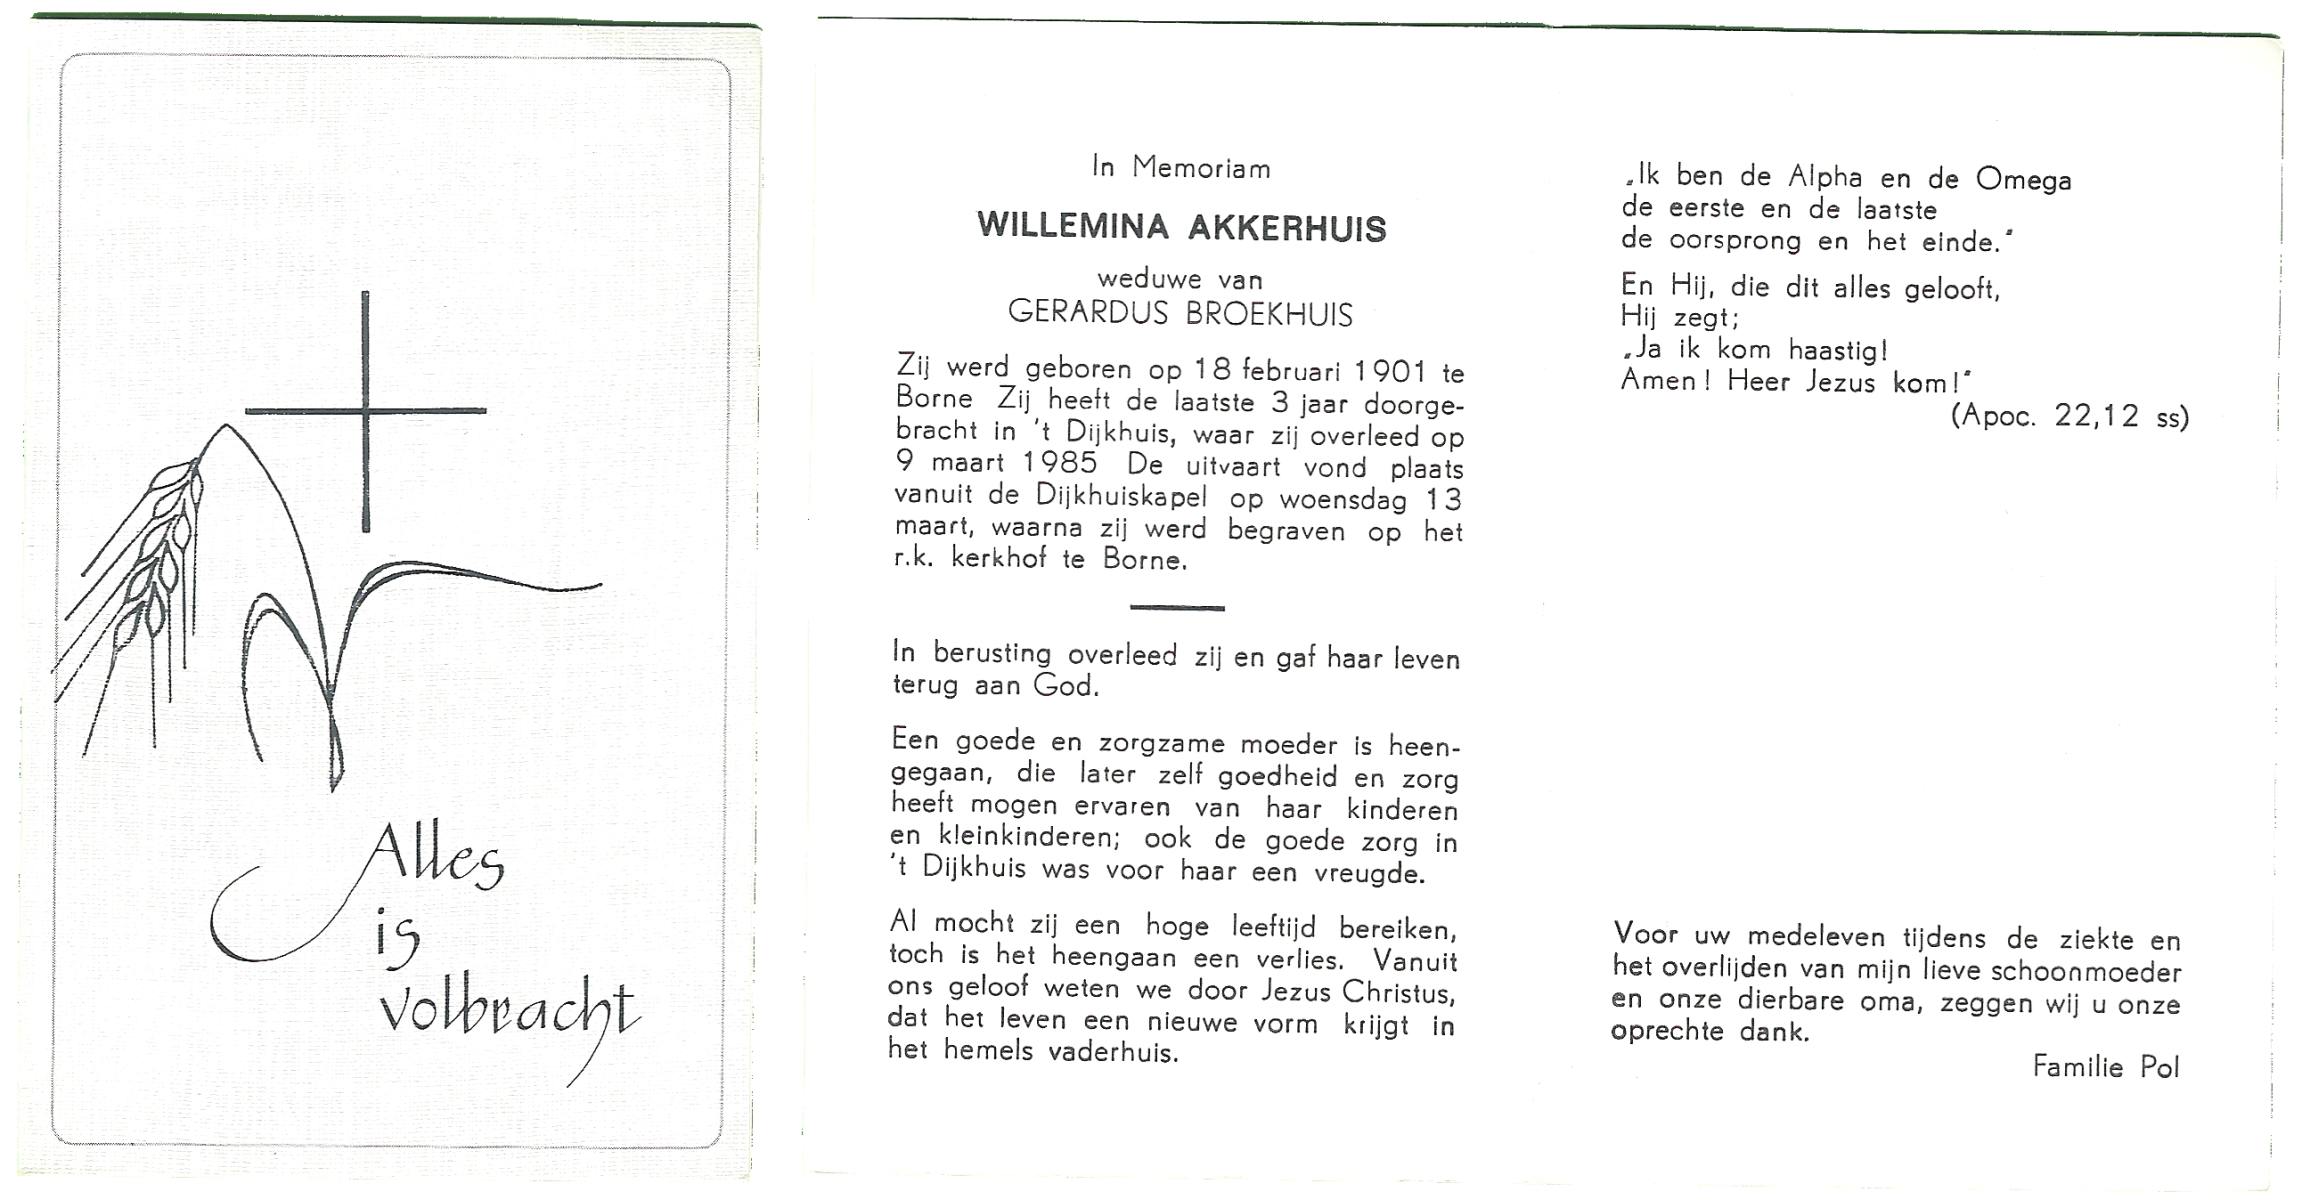 Alles
is
volbracht
In Memoriam
WILLEMINA AKKERHUIS
weduwe van
GERARDUS BROEKHUIS
Zij werd geboren op 18 februari 1901 te
Borne Zij heeft de laatste 3 jaar doorge-
bracht in 't Dijkhuis, waar zij overleed op
9 maart 1985 De uitvaart vond plaats
vanuit de Dijkhuiskapel op woensdag 13
maart, waarna zij werd begraven op het
r.k. kerkhof te Borne.
In berusting overleed zij en gaf haar leven
terug aan God.
Een goede en zorgzame moeder is heen-
gegaan, die later zelf goedheid en zorg
heeft mogen ervaren van haar kinderen
en kleinkinderen; ook de goede zorg in
't Dijkhuis was voor haar een vreugde.
Al mocht zij een hoge leeftijd bereiken,
toch is het heengaan een verlies. Vanuit
ons geloof weten we door Jezus Christus,
dat het leven een nieuwe vorm krijgt in
het hemels vaderhuis.
„Ik ben de Alpha en de Omega
de eerste en de laatste
de oorsprong en het einde."
En Hij, die dit alles gelooft,
Hij zegt;
„Ja ik kom haastig!
Amen! Heer Jezus kom!"
(Apoc. 22,12 ss)
Voor uw medeleven tijdens de ziekte en
het overlijden van mijn lieve schoonmoeder
en onze dierbare oma, zeggen wij u onze
oprechte dank.
Familie Pol